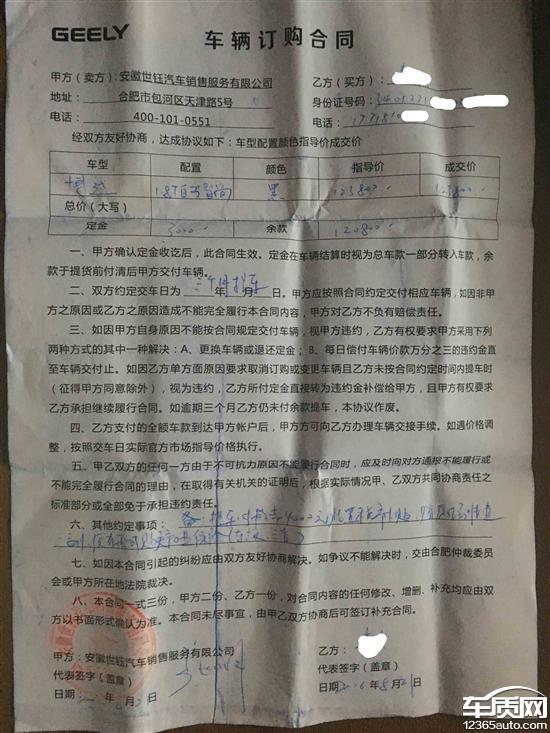 GEELY 车辆订购合同
甲方（卖方）：安徽世钰汽车销售服务有限公司 乙方（买方）：
地址：合肥市包河区天津路5号 身份证号码：
电话：400-101-0551 电话：
经双方友好协商，达成协议如下：车型配置颜色指导价成交价
车型 配置 颜色 指导价 成交价
黑 123800
总价（大写）
定金 3000 余款 120800
一、甲方确认定金收讫后，此合同生效。定金在车辆结算时视为总车款一部分转入车款，余
款于提货前付清后甲方交付车辆。
二、双方约定交车日为 三个月提车 年 月 日。甲方应按照合同约定交付相应车辆，如因非甲
方之原因或乙方之原因造成不能完全履行本合同内容，甲方对乙方不负有赔偿责任。
三、如因甲方自身原因不能按合同规定交付车辆，视甲方违约，乙方有权要求甲方采用下列
两种方式的其中一种解决：A、更换车辆或退还定金；B、每日偿付车辆价款万分之三的违约金直
至车辆交付止。如因乙方单方面原因要求取消订购或变更车辆且乙方未按合同约定时间内提车时
（征得甲方同意除外），视为违约，乙方所付定金直接转为违约金补偿给甲方，且甲方有权要求
乙方承担继续履行合同。如逾期三个月乙方仍未付余款提车，本协议作废。
四、乙方支付的全额车款到达甲方帐户后，甲方方可向乙方办理车辆交接手续。如遇价格调
整，按照交车日实际官方市场指导价格执行。
五、甲乙双方的任何一方由于不可抗力原因不能履行合同时，应及时向对方通报不能履行或
不能完全履行合同的理由，在取得有关机关的证明后，根据实际情况甲、乙双方共同协商责任之
标准部分或全部免于承担违约责任。
六、其他约定事项：
七、如因本合同引起的纠纷应由双方友好协商解决。如争议不能解决时，交由合肥仲裁委员
会或甲方所在地法院裁决。
八、本合同一式三份，甲方二份、乙方一份，对合同内容的任何修改、增删、补充均应由双
方以书面形式确认为准。本合同未尽事宜，由甲乙双方协商后可签订补充合同。
甲方：安徽世钰汽车销售服务有限公司 乙方：
代表签字（盖章） 代表签字（盖章）
日期 日期
车质网
www.12365auto.com